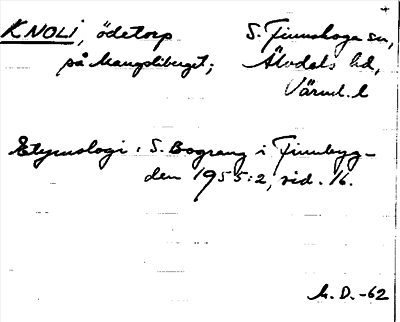 KNOLI, ödetorp S. Finnskoga sn,
på Mangsliberget; Älvdals hd,
Värml. l
Etymologi: S. Bograng i Finnbyg-
den 1955:2, sid. 16.
M. D. -62